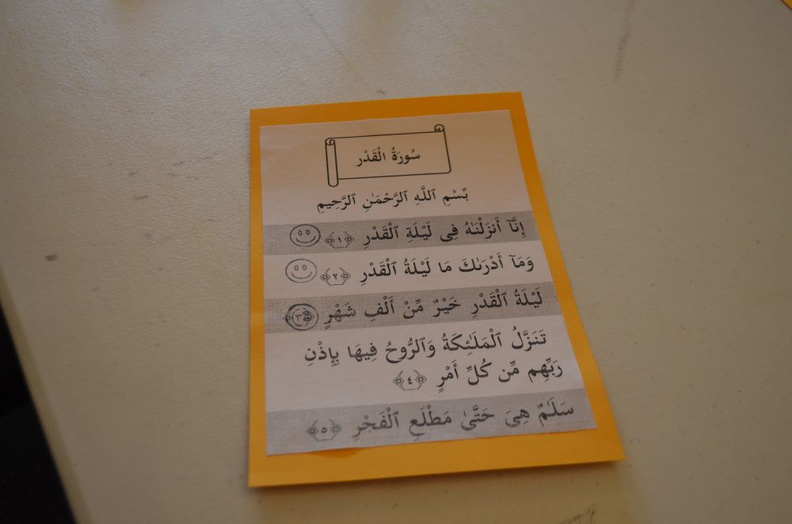 سُورَةُ الْقَدْر
بِّسْمِ ٱللَّهِ ٱلرَّحْمَـٰنِ ٱلرَّحِيمِ
إِنَّآ أَنزَلْنَـٰهُ فِى لَيْلَةِ ٱلْقَدْرِ ﴿١﴾
وَمَآ أَدْرَىٰكَ مَا لَيْلَةُ ٱلْقَدْرِ ﴿٢﴾
لَيْلَةُ ٱلْقَدْرِ خَيْرٌ مِّنْ أَلْفِ شَهْرٍ ﴿٣﴾
تَنَزَّلُ ٱلْمَلَـٰٓئِكَةُ وَٱلرُّوحُ فِيهَا بِإِذْنِ
رَبِّهِم مِّن كُلِّ أَمْرٍ ﴿٤﴾
سَلَـٰمٌ هِىَ حَتَّىٰ مَطْلَعِ ٱلْفَجْرِ ﴿٥﴾